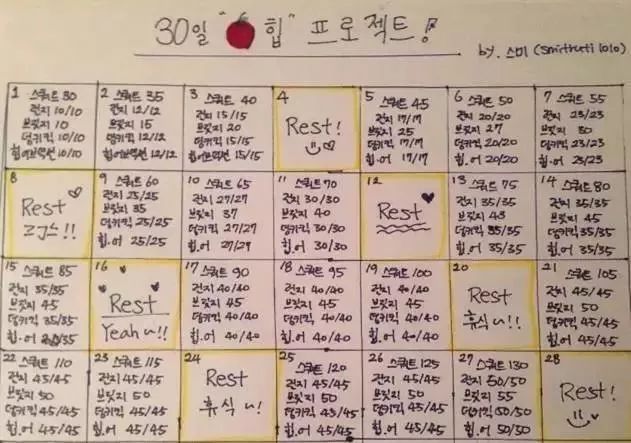 30일 "힙" 프로젝트!
by. 스미 (Smittuti lolo)
1 스쿼트 30
런지 10/10
브릿지 10
덩키킥 10/10
힙어브덕션 10/10
2 스쿼트 35
런지 12/12
브릿지 15
덩키킥 12/12
힙어브덕션 12/12
3 스쿼트 40
런지 15/15
브릿지 20
덩키킥 15/15
힙어브덕션 15/15
4
Rest!
5 스쿼트 45
런지 17/17
브릿지 25
덩키킥 17/17
힙.어 17/17
6 스쿼트 50
런지 20/20
브릿지 27
덩키킥 20/20
힙.어 20/20
7 스쿼트 55
런지 23/23
브릿지 30
덩키킥 23/23
힙.어 23/23
8
Rest
굿!!
9 스쿼트 60
런지 25/25
브릿지 35
덩키킥 25/25
힙.어 25/25
10 스쿼트 65
런지 27/27
브릿지 37
덩키킥 27/27
힙.어 27/27
11 스쿼트 70
런지 30/30
브릿지 40
덩키킥 30/30
힙.어 30/30
12
Rest
13 스쿼트 75
런지 35/35
브릿지 43
덩키킥 35/35
힙.어 35/35
14 스쿼트 80
런지 35/35
브릿지 45
덩키킥 35/35
힙.어 35/35
15 스쿼트 85
런지 35/35
브릿지 45
덩키킥 35/35
힙.어 35/35
16
Rest
Yeah~!!
17 스쿼트 90
런지 40/40
브릿지 45
덩키킥 40/40
힙.어 40/40
18 스쿼트 95
런지 40/40
브릿지 45
덩키킥 40/40
힙.어 40/40
19 스쿼트 100
런지 40/40
브릿지 45
덩키킥 40/40
힙.어 40/40
20
Rest
휴식~!!
21 스쿼트 105
런지 45/45
브릿지 50
덩키킥 45/45
힙.어 45/45
22 스쿼트 110
런지 45/45
브릿지 50
덩키킥 45/45
힙.어 45/45
23 스쿼트 115
런지 45/45
브릿지 50
덩키킥 45/45
힙.어 45/45
24
Rest
휴식~!
25 스쿼트 120
런지 45/45
브릿지 50
덩키킥 45/45
힙.어 45/45
26 스쿼트 125
런지 45/45
브릿지 50
덩키킥 45/45
힙.어 45/45
27 스쿼트 130
런지 50/50
브릿지 55
덩키킥 50/50
힙.어 50/50
28
Rest!